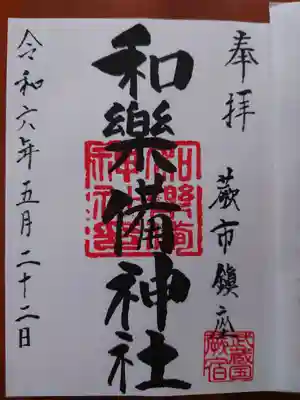 奉拝
蕨市鎮座
武蔵国
蕨宿
和樂備神社
和樂備
神社
令和六年五月二十二日